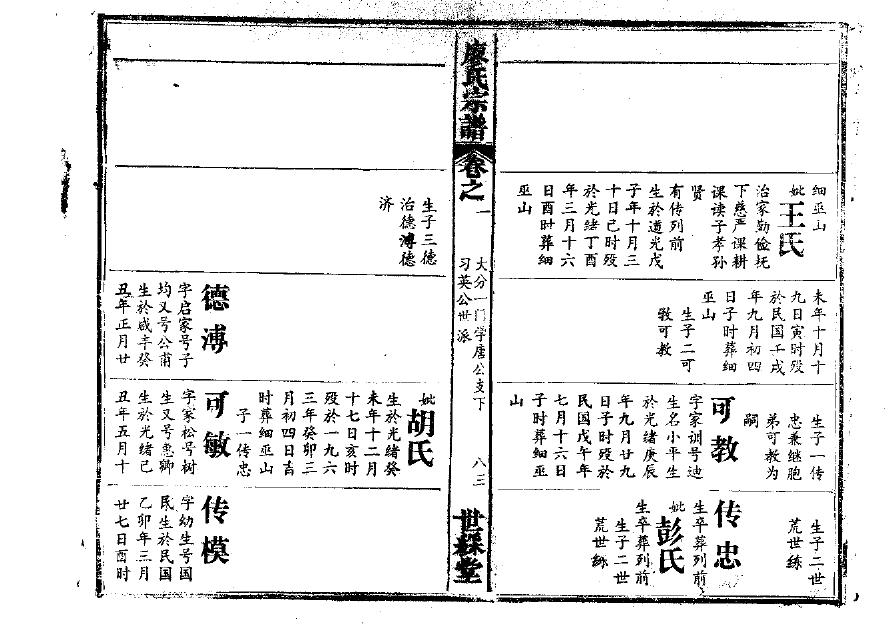 细巫山
妣王氏
治家勤俭抚
下慈严课耕
课读子孝孙
贤
有传列前
生於道光戊
子年十月三
十日己时殁
於光绪丁酉
年三月十六
日酉时葬细
巫山
未年十月十
九日寅时殁
於民国壬戌
年九月初四
日子时葬细
巫山
生子二可
敏可教
生子一传
忠兼继胞
弟可教为
嗣
可教
字家训号迪
生名小平生
於光绪庚辰
年九月廿九
日子时殁於
民国戊午年
七月十六日
子时葬细巫
山
生子二世
荒世练
传忠
生卒葬列前
妣彭氏
生卒葬列前
生子二世
荒世练
廖氏宗谱
卷之一
大分一门学唐公支下
习英公世派
八三
世䌽堂
生子三德
治德溥德
济
德溥
字启家号子
均又号公甫
生於咸丰癸
丑年正月廿
妣胡氏
生於光绪癸
未年十二月
十七日亥时
殁於一九六
三年癸卯三
月初四日吉
时葬细巫山
子一传忠
可敏
字家松号树
生又号惫卿
生於光绪己
丑年五月十
传模
字幼生号国
民生於民国
乙卯年三月
廿七日酉时